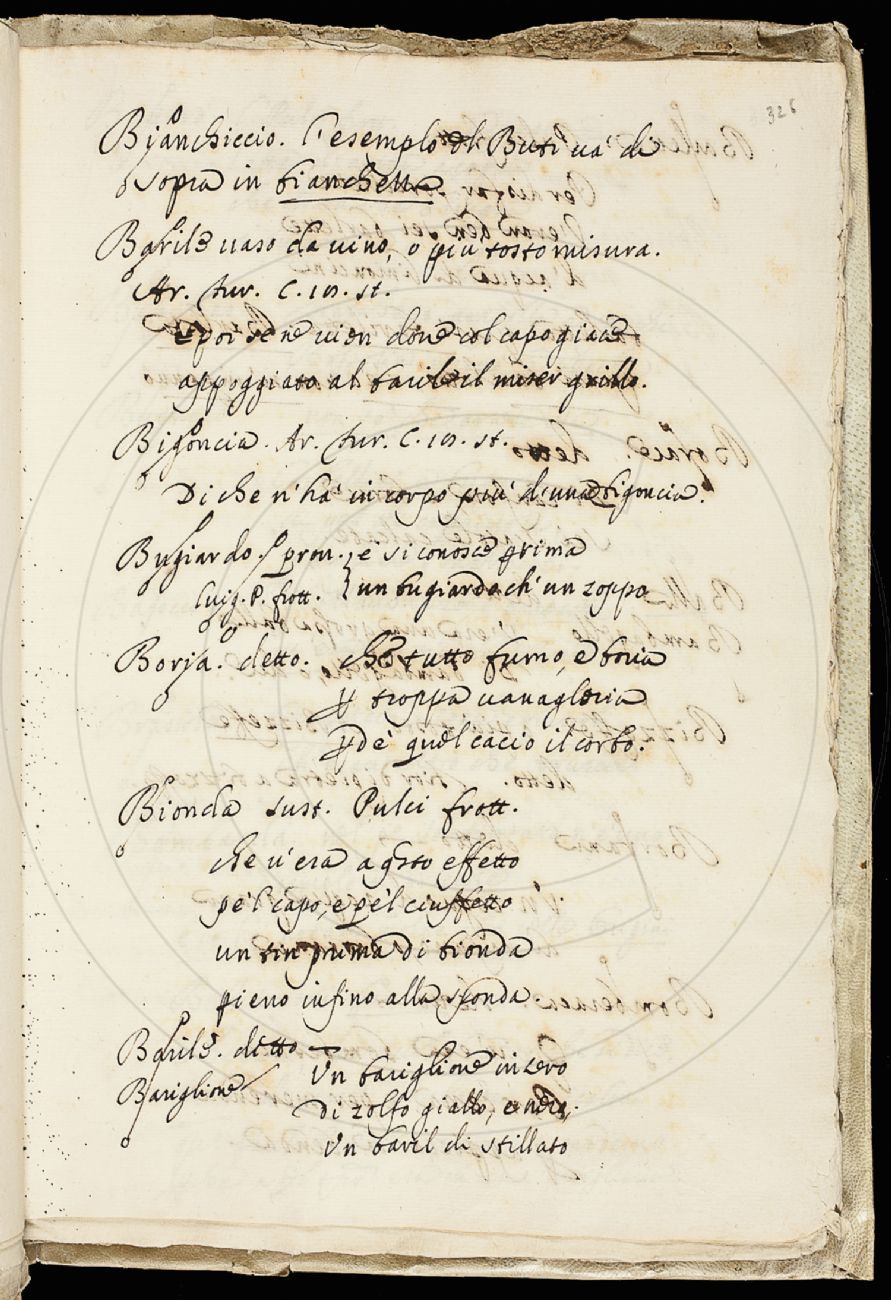 326
Bianchiccio. l'esemplo di Buti va' di
sopra in bianchetto.
Barile vaso da vino, o più tosto misura.
Ar. fur. C. 10. st.
e poi se ne vien dove col capo giace
appoggiato al barile il miser grillo.
Bigoncia. Ar. fur. C. 10. st.
Di che n'ha' in corpo più d'una bigoncia.
Bugiardo. prou. e si conosce prima
Luig. P. frott. un bugiardo ch' un zoppo
Boria. detto. che tutto fumo, e boria
troppa vanagloria
de' quel cacio il corbo.
Bionda sust. Pulci frott.
che v'era a questo effetto
pe'l capo, e pe'l ciuffetto
un tin prima di bionda
pieno infino alla sponda.
Barile. detto
Bariglione
Un bariglione intero
Di zolfo giallo, e nero,
Un baril di stillato